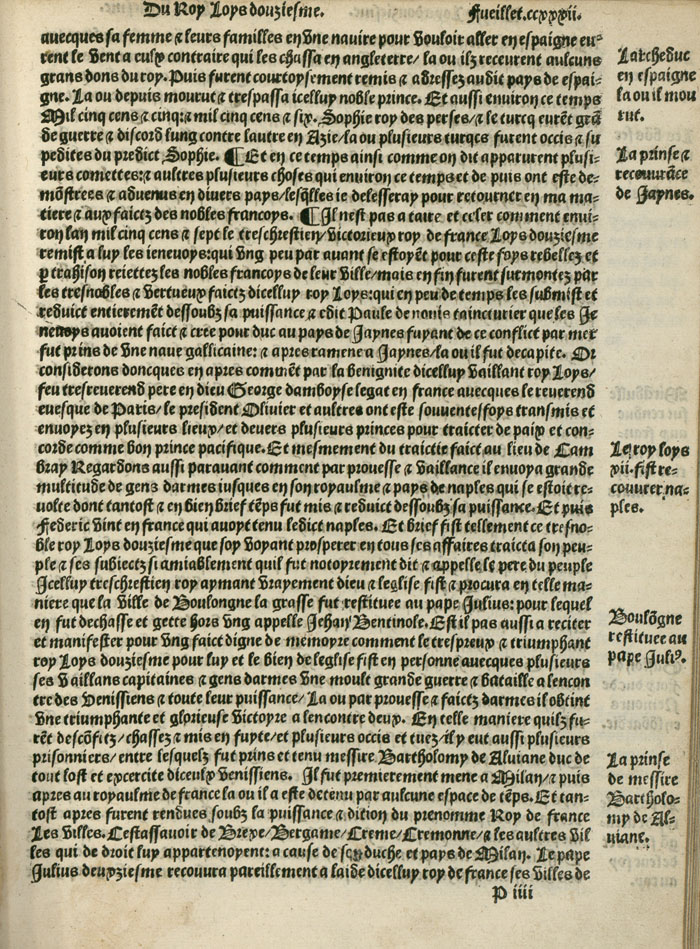 Du Roy Loys douziesme. Fueillet.ccxxxii.
auecques sa femme ⁊ leurs familles en vne nauire pour vouloir aller en espaigne eu-
rent le vent a culx contraire qui les chassa en angleterre/ la ou ilz receurent aulcuns
grans dons du roy. Puis furent courtoysement remis ⁊ adressez audit pays de espai-
gne. La ou depuis mourut ⁊ trespassa icelluy noble prince. Et aussi enuiron ce temps
Mil cinq cens ⁊ cinq: ⁊ mil cinq cens ⁊ six. Sophie roy des perses/ ⁊ le turcq eurēt grā
de guerre ⁊ discord lung contre lautre en Azie/ la ou plusieurs turqcs furent occis ⁊ su
pedites du predict Sophie. ¶ Et en ce temps ainsi comme on dit apparurent plusi-
eurs comettes: ⁊ aultres plusieurs choses qui enuiron ce temps et de puis ont este de-
mōstrees ⁊ aduenus en diuers pays/ lesq̄lles ie delesseray pour retourner en ma ma-
tiere ⁊ aux faictz des nobles francoys. ¶ Il nest pas a taire et celer comment enui-
ron lan mil cinq cens ⁊ sept le treschrestien/ victorieux roy de france Loys douziesme
remist a luy les ieneuoys: qui vng peu par auant se estoyēt pour ceste foys rebellez et
ꝑ trahison reiettez les nobles francoys de leur ville/ mais en fin furent surmontez par
les tresnobles ⁊ vertueux faictz dicelluy roy Loys: qui en peu de temps les submist et
reduict entieremēt dessoubz sa puissance ⁊ edit Paule de nouis taincturier que les Je
neuoys auoient faict ⁊ cree pour duc au pays de Jaynes fuyant de ce conflict par mer
fut prins de vne naue gallicaine: ⁊ apres ramene a Jaynes/ la ou il fut decapite. Or
considerons doncques en apres commēt par la benignite dicelluy vaillant roy Loys/
feu tresreuerend pere en dieu George damboyse legat en france auecques le reuerend
euesque de Paris/ le president Oliuier et aultres ont este souuentesfoys transmis et
enuoyez en plusieurs lieux/ et deuers plusieurs princes pour traicter de paix et con-
corde comme bon prince pacifique. Et mesmement du traictie faict au lieu de Cam
bray Regardons aussi parauant comment par prouesse ⁊ vaillance il enuoya grande
multitude de gens darmes iusques en son royaulme ⁊ pays de naples qui se estoit re-
uolte dont tantost ⁊ en bien brief tēps fut mis ⁊ reduict dessoubz sa puissance. Et puis
Federic vint en france qui auoyt tenu ledict naples. Et brief fist tellement ce tresno-
ble roy Loys douziesme que soy voyant prosperer en tous ses affaires traicta son peu-
ple ⁊ ses subiectz si amiablement quil fut notoyrement dit ⁊ appelle le pere du peuple
Jcelluy treschrestien roy aymant vrayement dieu ⁊ leglise fist ⁊ procura en telle ma-
niere que la ville de Boulongne la grasse fut restituee au pape Julius: pour lequel
en fut dechasse et gette hors vng appelle Jehan Bentinole. Est il pas aussi a reciter
et manifester pour vng faict digne de memoyre comment le trespreux ⁊ triumphant
roy Loys douziesme pour luy et le bien de leglise fist en personne auecques plusieurs
ses vaillans capitaines ⁊ gens darmes vne moult grande guerre ⁊ bataille a lencon
tre des venissiens ⁊ toute leur puissance/ La ou par prouesse ⁊ faictz darmes il obtint
vne triumphante et glorieuse victoyre a lencontre deux. En telle maniere quilz fu-
rēt descōfitz/ chassez ⁊ mis en fuyte/ et plusieurs occis et tuez/ il y eut aussi plusieurs
prisonniers/ entre lesquelz fut prins et tenu messire Bartholomy de Aluiane duc de
tout lost et excercite diceulx venissiens. Il fut premierement mene a Milan/ ⁊ puis
apres au royaulme de france la ou il a este detenu par aulcune espace de tēps. Et tan-
tost apres furent rendues soubz la puissance ⁊ dition du prenomme Roy de france
Les villes. Cestassauoir de Brexe/ Bergame/ Creme/ Cremonne/ ⁊ les aultres vil
les qui de droit luy appartenoyent: a cause de duche et pays de Milan. Le pape
Julius deuxziesme recouura pareillement a laide dicelluy roy de france ses villes de
P iiii
Larcheduc
en espaigne
la ou il mou
rut.
La prinse ⁊
recouurāce
de Jaynes.
Le roy loys
xii. fist re-
couurer na-
ples.
Boulōgne
restituee au
pape Juliꝰ.
La prinse
de messire
Bartholo-
my de Al-
uiane.